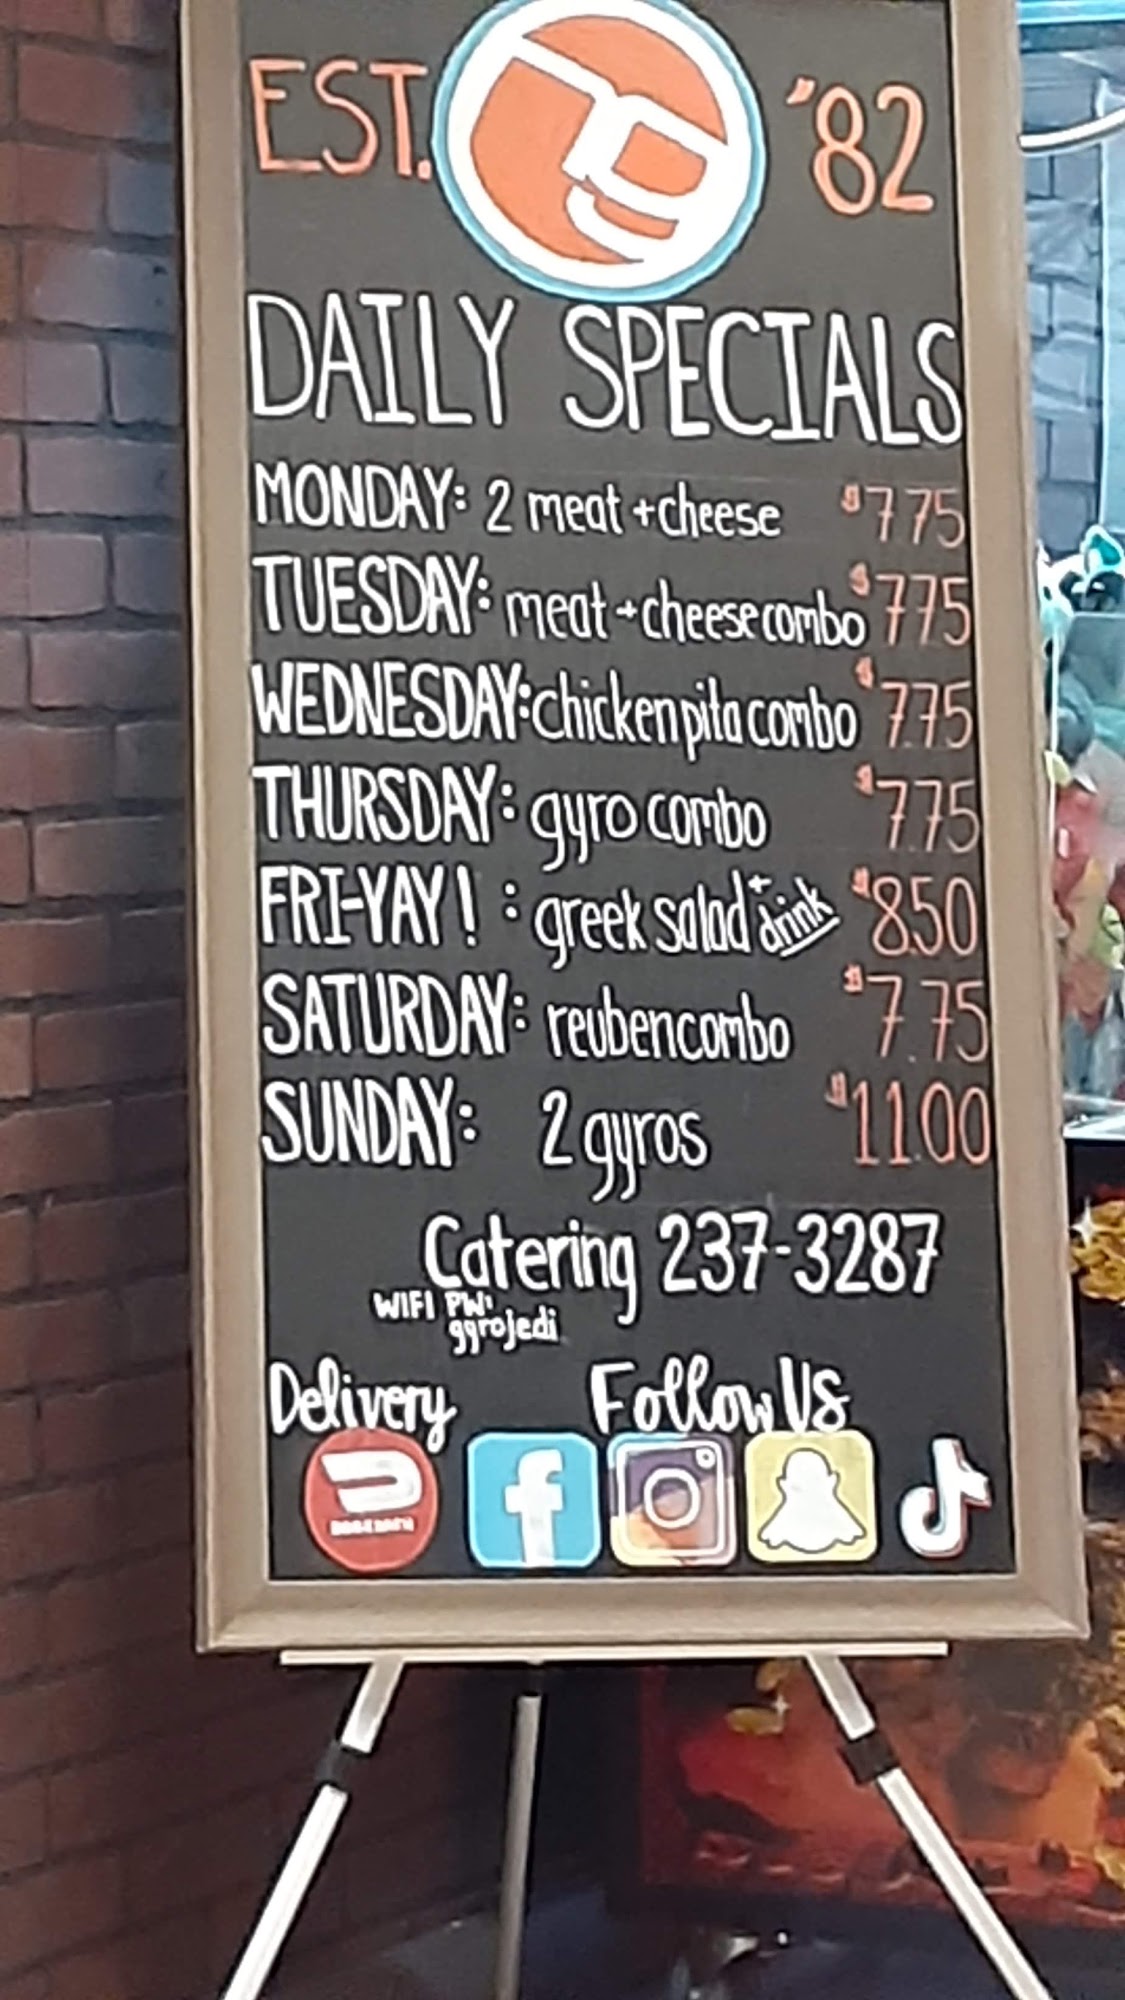 EST. '82
DAILY SPECIALS
MONDAY: 2 meat + cheese $7.75
TUESDAY: meat + cheese combo $7.75
WEDNESDAY: chicken pita combo $7.75
THURSDAY: gyro combo $7.75
FRI-YAY! : greek salad + drink $8.50
SATURDAY: reuben combo $7.75
SUNDAY: 2 gyros $11.00
Catering 237-3287
WIFI PW:
gyrojedi
Delivery Follow Us
DOORDASH